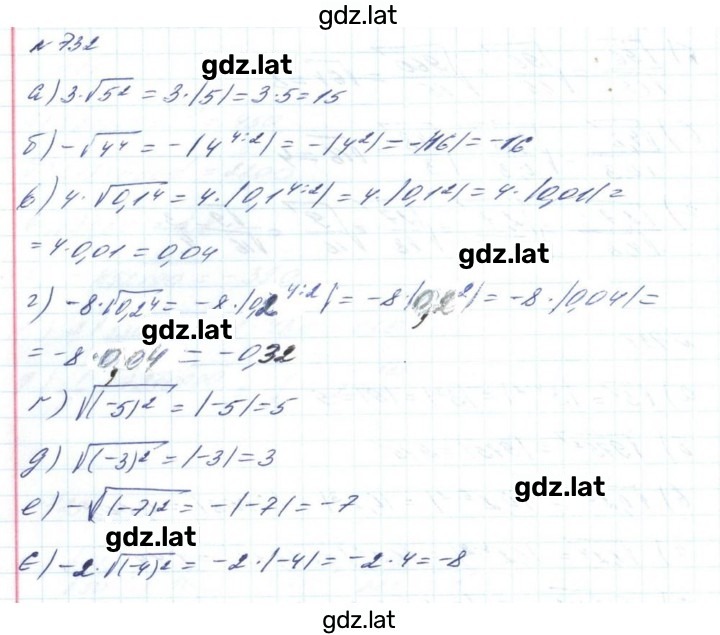 gdz.lat
№ 732
gdz.lat
а) 3·√5² = 3·|5| = 3·5 = 15
б) -√4⁴ = -|4⁴:²| = -|4²| = -|16| = -16
в) 4·√0,1⁴ = 4·|0,1⁴:²| = 4·|0,1²| = 4·|0,01| =
= 4·0,01 = 0,04
gdz.lat
г) -8·√0,2⁴ = -8·|0,2⁴:²| = -8·|0,2²| = -8·|0,04| =
gdz.lat
= -8·0,04 = -0,32
г) √(-5)² = |-5| = 5
д) √(-3)² = |-3| = 3
gdz.lat
е) -√(-7)² = -|-7| = -7
gdz.lat
є) -2·√(-4)² = -2·|-4| = -2·4 = -8
gdz.lat